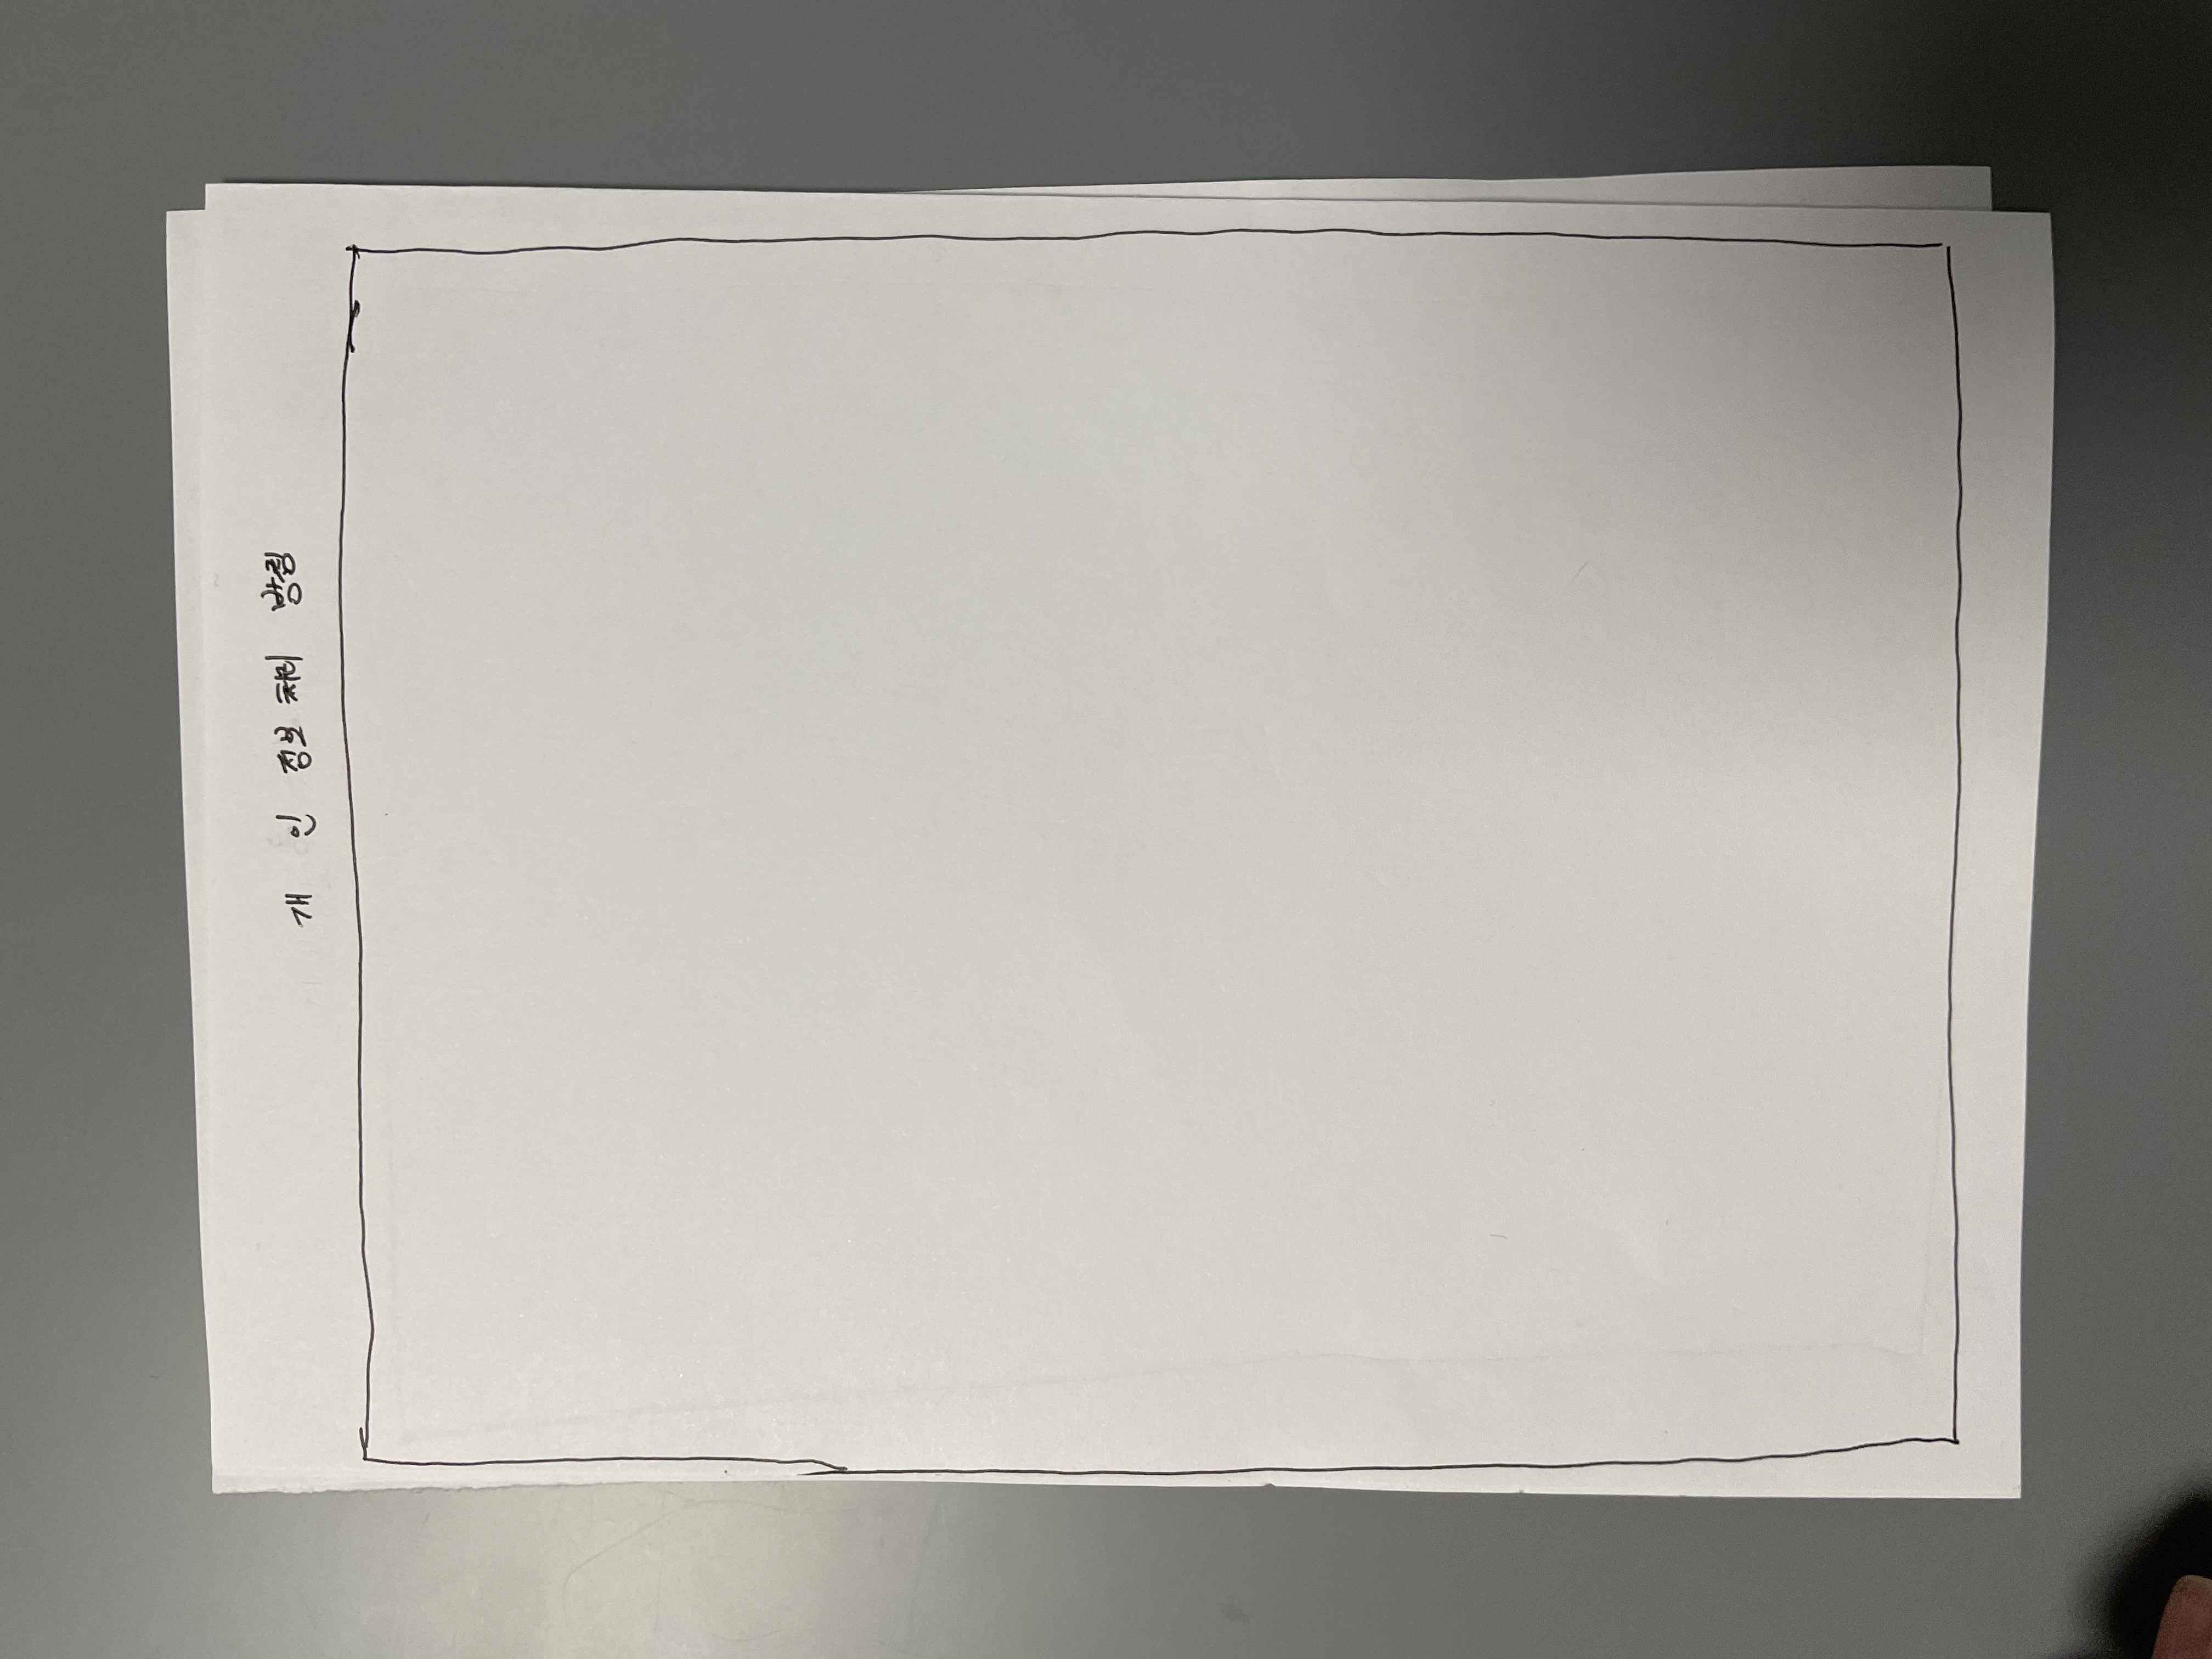 개 인 정보 처리 방침